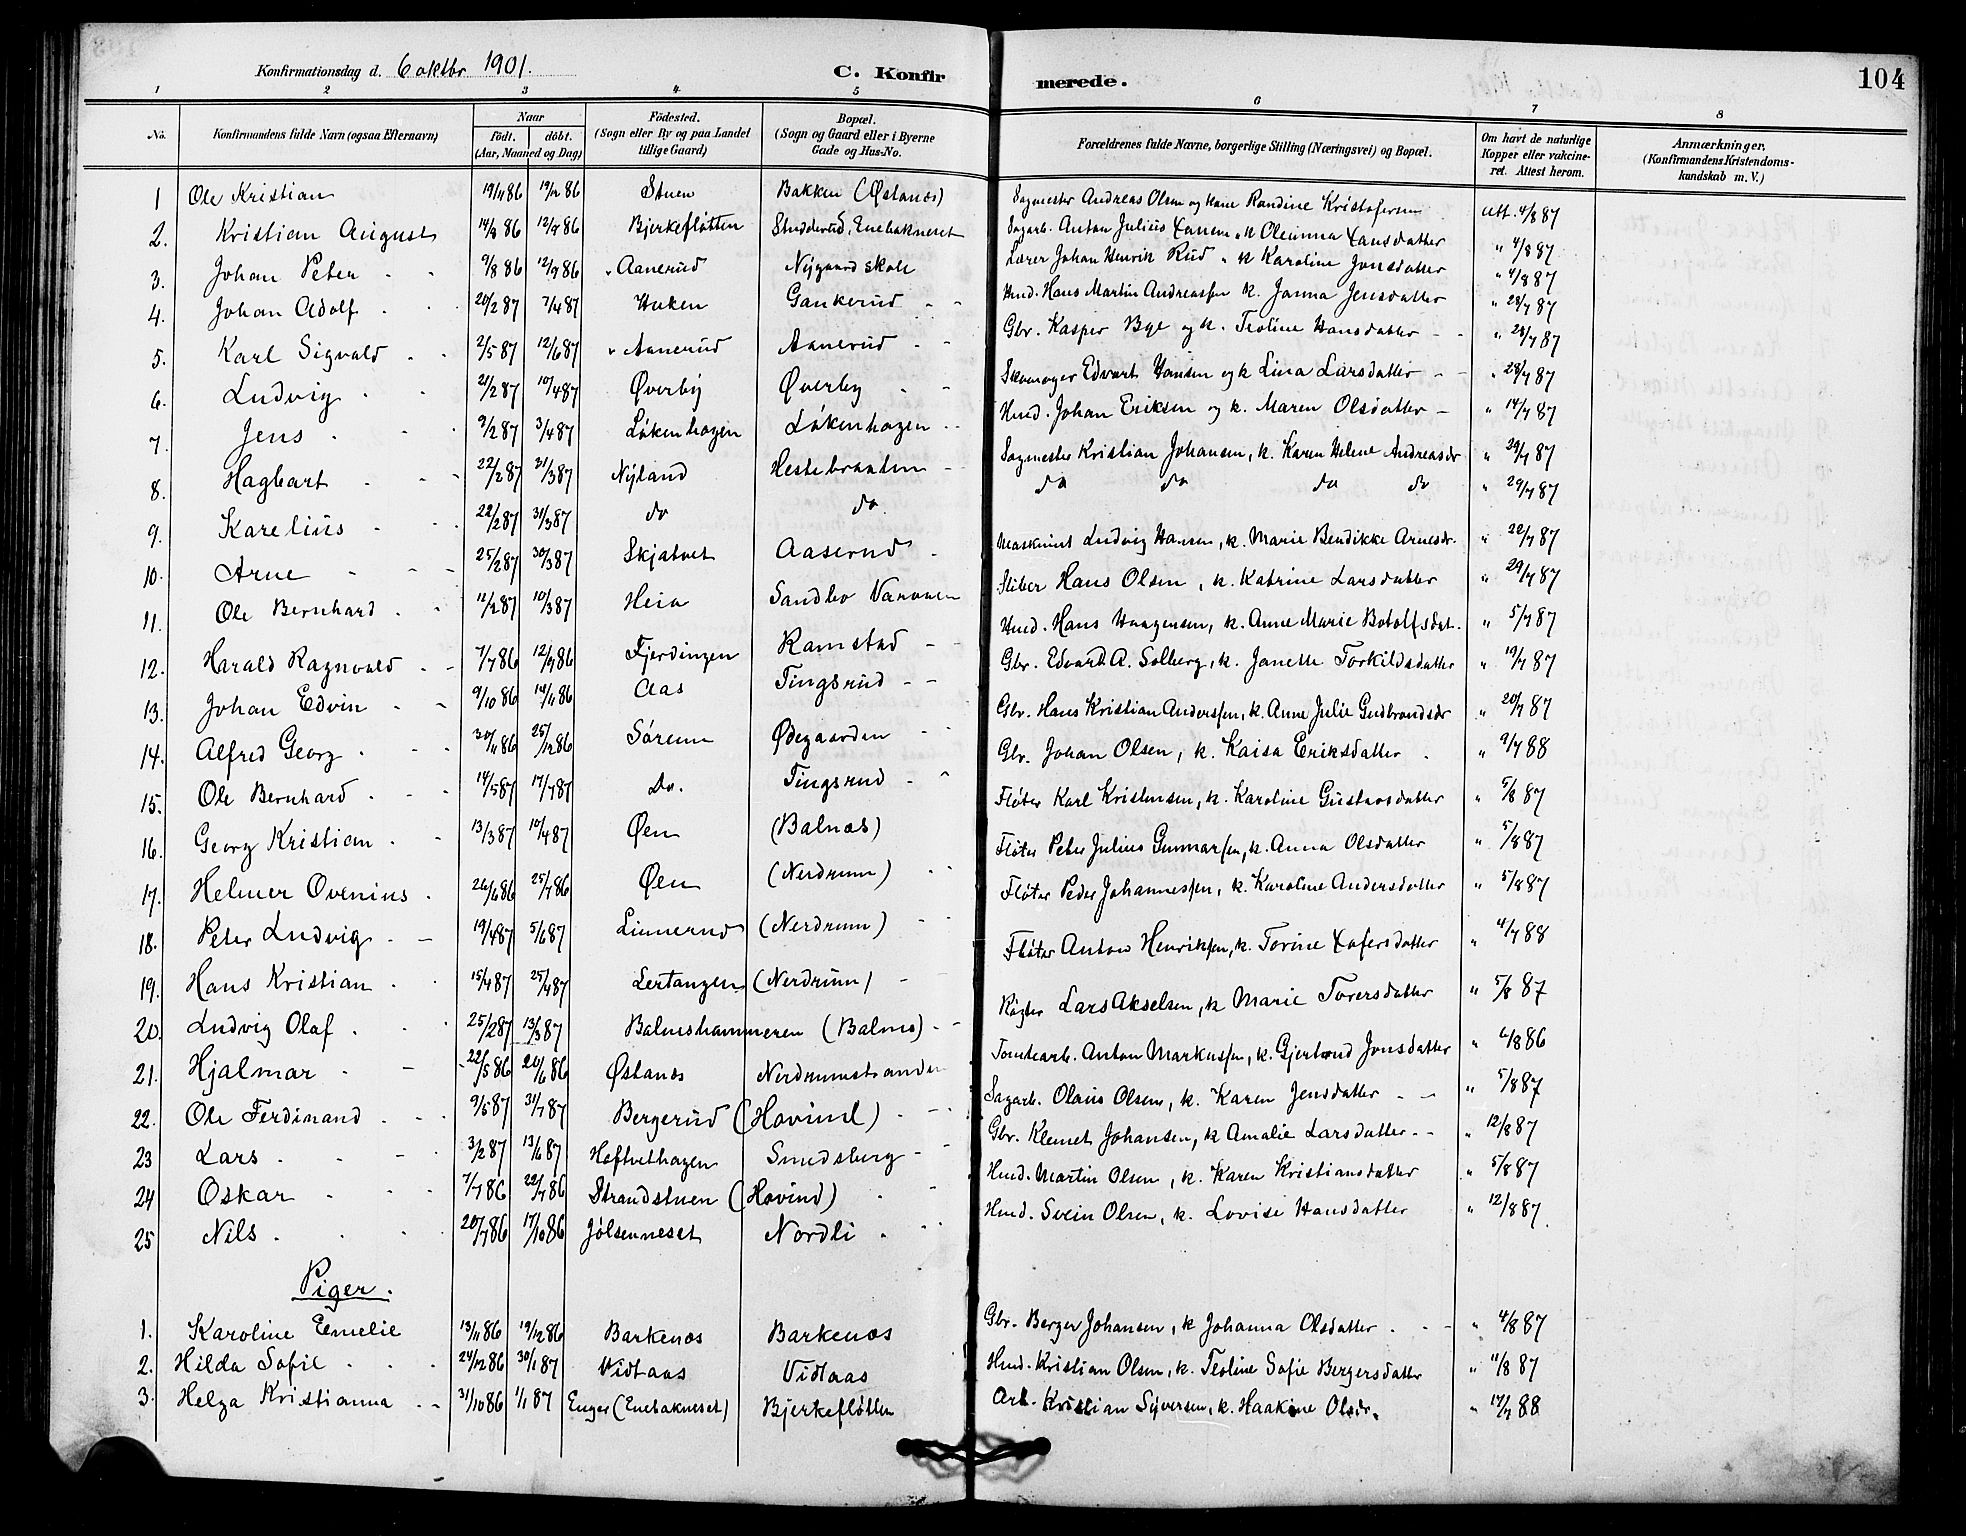 Konfirmationsdag d. 6 oktbr 1901.
C. Konfirmerede.
104
1 2 3 4 5 6 7 8
No. Konfirmandens fulde Navn (ogsaa Efternavn) Naar født. døbt. (Aar, Maaned og Dag) Fødested. (Sogn eller By og paa Landet tillige Gaard) Bopæl. (Sogn og Gaard eller i Byerne Gade og Hus-No. Forældrenes fulde Navne, borgerlige Stilling (Næringsvei) og Bopæl. Om havt de naturlige Kopper eller vakcineret. Attest herom. Anmærkninger. (Konfirmandens Kristendomskundskab m. V.)
1 Ole Kristian 19/1 86 19/2 86 Stuen Bakken (Østanes) Sagmester Andreas Olsen og Kone Randine Kristofersen Att. 4/8 87
2. Kristian August 14/8 86 12/9 86 Bjerkefløtten Studderud, Enebakneset Sagarb. Anton Julius " K Oleanna " 4/8 87
3. Johan Peter 9/8 86 12/9 86 " Aanerud Nygaard skole Lærer Johan Henrik Rud " K Karoline Jonsdatter " 4/8 87
4. Johan Adolf 20/2 87 7/4 87 Huken Gankerud Hmd. Hans Martin Andreassen K. Janna Jensdatter " 28/7 87
5. Karl Sigvald 2/5 87 12/6 87 " Aanerud Aanerud Gbr. Kasper Bye og K. Teoline Hansdatter " 28/7 87
6. Ludvig 21/2 87 10/4 87 Øverby Øverby Skomager Edvart Hansen og K Lina Larsdatter " 28/7 87
7. Jens 9/2 87 3/4 87 Løkenhagen Løkenhagen Hmd. Johan Eriksen og K. Maren Olsdatter " 14/7 87
8. Hagbart 22/2 87 31/3 87 Nyland Hestebraaten Sagmester Kristian Johansen, K. Karen Helene Andreasdr " 29/7 87
9. Karelius 22/2 87 31/3 87 do do. do do do do " 29/7 87
10. Arne 25/2 87 30/3 87 Skjatvet Aaserud Maskinist Ludvig Hansen, K. Marie Bendikke Arnesdr. " 22/7 87
11. Ole Bernhard 12/2 87 10/3 87 Heia Sandbo Sliber Hans Olsen, K. Katrine Larsdatter " 29/7 87
12. Harald Ragnvald 7/7 86 12/9 86 Fjerdingen Ramstad Hmd. Hans Haagensen, K. Anne Marie Botolfsdat. " 5/7 87
13. Johan Edvin 9/10 86 14/11 86 Aas Tingsrud Gbr. Edvard A. Solberg, K. Janette Torkildsdatter " 19/7 87
14. Alfred Georg 30/11 86 25/12 86 Sørenn Ødegaarden Gbr. Hans Kristian Anderssen, K. Anne Julie Gudbrandsdr " 20/7 87
15. Ole Bernhard 14/5 87 17/7 87 Do. Tingsrud Gbr. Johan Olsen, K. Kaisa Eriksdatter " 9/7 88
16. Georg Kristian 13/3 87 10/4 87 Øen (Balnæs) Fløter Karl Kristensen, K. Karoline Gustavsdatter " 5/8 87
17. Helmer Ovenius 26/6 86 25/7 86 Øen (Nerdrum) Fløter Peter Julius Gunnarsen, K. Anna Olsdatter " 5/8 87
18. Peter Ludvig 19/4 87 5/6 87 Linnerud (Nerdrum) Fløter Peder Johannessen, K. Karoline Andersdatter " 5/8 87
19. Hans Kristian 15/4 87 25/4 87 Lertangen (Nerdrum) Fløter Anton Henriksen, K. Torine Xofersdatter " 4/7 88
20. Ludvig Olaf 25/2 87 13/3 87 Balneshammeren (Balnes) Røgter Lars Akselsen, K Marie Toversdatter " 5/8 87
21. Hjalmar 22/5 86 20/6 86 Østanes Nerdrumstranden Tomtearb. Anton Markussen, K. Gjertrud Jonsdatter " 6/8 86
22. Ole Ferdinand 9/5 87 31/7 87 Bergerud (Hovind) Sagarb. Olaus Olsen, K. Karen Jensdatter " 5/8 87
23 Lars 3/2 87 13/6 87 Høftvethagen Smedsberg Gbr. Klemet Johansen, K Amalie Larsdatter " 12/8 87
24 Oskar 7/7 86 22/7 86 Strandstuen (Hovind) Hmd. Martin Olsen, K. Karen Kristiansdatter " 5/8 87
25 Nils 20/7 86 17/10 86 Jølsenneset Nordli Hmd. Svein Olsen, K. Lovise Hansdatter " 12/8 87
Piger.
1. Karoline Emelie 13/11 86 19/12 86 Barkenæs Barkenæs Gbr. Berger Johansen, K Johanna Olsdatter " 4/8 87
2. Hilda Sofie 24/12 86 30/1 87 Vidtaas Vidtaas Hmd. Kristian Olsen, K. Teoline Sofie Bergersdatter " 11/8 87
3. Helga Kristianna 31/10 86 1/1 87 Enger (Enebakneset) Bjerkefløtten Arb. Kristian Syversen, K. Haakine Olsdr. " 17/7 88